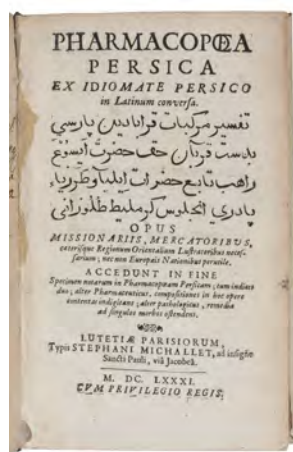 PHARMACOPŒA
PERSICA
EX IDIOMATE PERSICO
in Latinum conversa.
تفسير مركبات قرابادين پارسي
بدست قربان حق حضرت ايسوع
راهب تابع حضرات ايلياو طرزياء
پادري انجلوس كرمليط طلوزاني
OPUS
MISSIONARIIS, MERCATORIBUS,
cæterisque Regionum Orientalium Lustratoribus neces-
sarium; nec non Europæis Nationibus perutile.
ACCEDUNT IN FINE
Specimen notarum in Pharmacopœam Persicam; tum indices
duo; alter Pharmaceuticus, compositiones in hoc opere
contentas indigitans; alter pathologicus, remedia
ad singulos morbos ostendens.
LUTETIÆ PARISIORUM,
Typis STEPHANI MICHALLET, ad insigne
Sancti Pauli, viâ Jacobeâ.
M. DC. LXXXI.
CVM PRIVILEGIO REGIS;